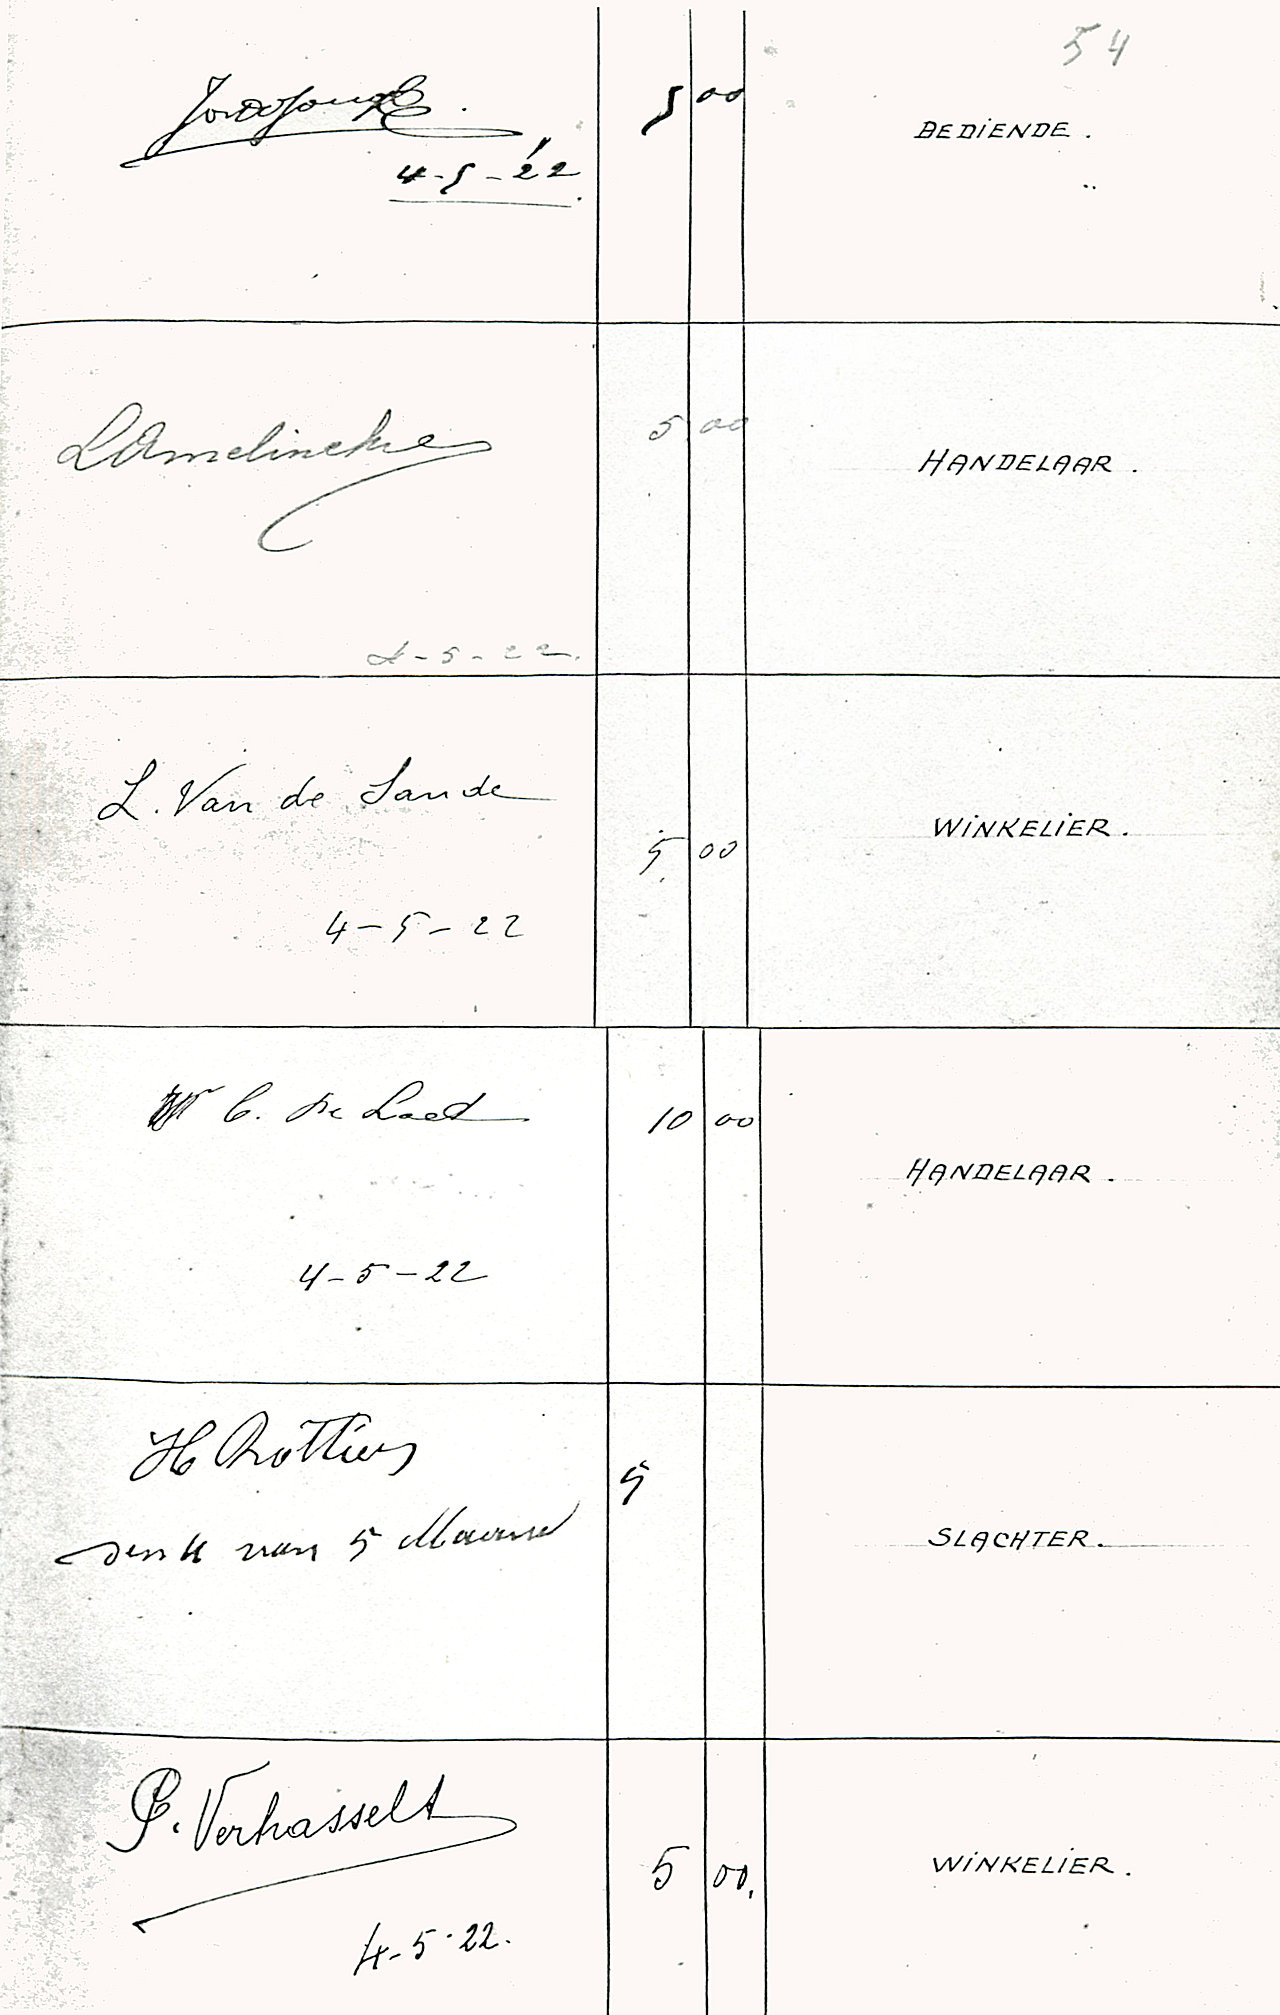 54
5 00
BEDIENDE.
4-5-22
LAmelinckx
5 00
HANDELAAR.
4-5-22.
L. Van de Sande
WINKELIER.
5 00
4-5-22
C. De Laet
10 00
HANDELAAR.
4-5-22
H Rottiers
5
van 5
SLACHTER.
P. Verhasselt
5 00,
WINKELIER.
4-5-22.